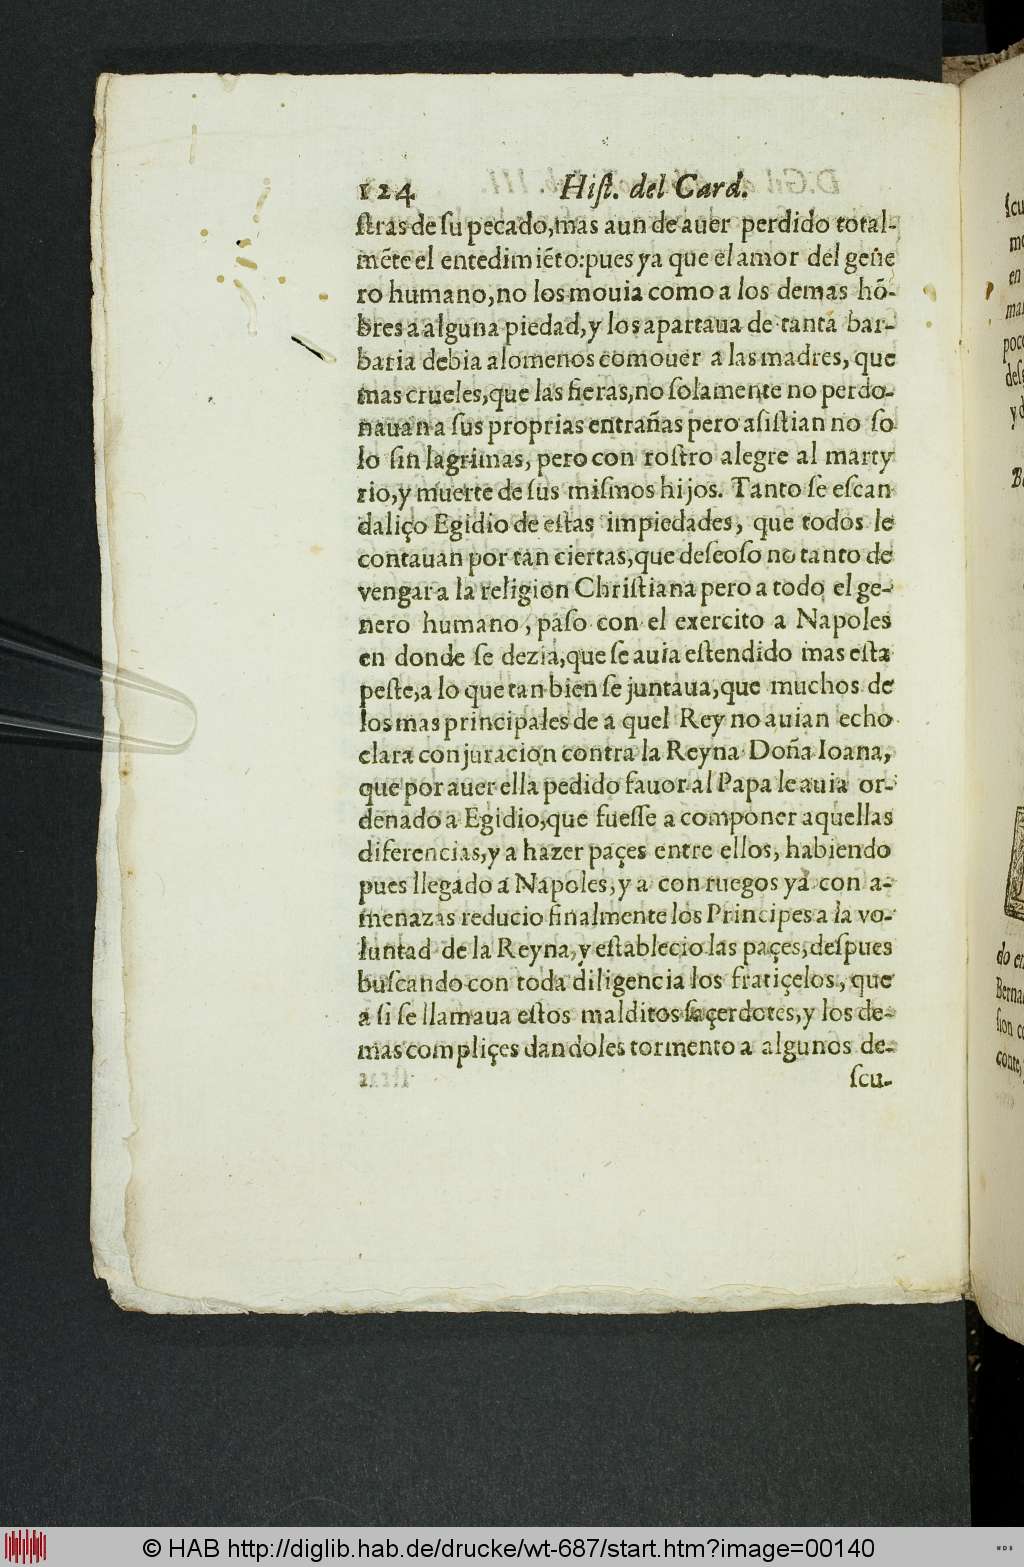 124 Hiſt. del Card.
ſtras de ſu pecado,mas aun de auer perdido total-
mẽte el entedimiẽto:pues ya que el amor del gene
ro humano,no los mouia como a los demas hõ-
bres a alguna piedad,y los apartaua de tanta bar-
baria debia alomenos comouer a las madres, que
mas crueles,que las fieras,no ſolamente no perdo-
nauan a ſus proprias entrañas pero aſiſtian no ſo
lo ſin lagrimas, pero con roſtro alegre al marty
rio,y muerte de ſus miſmos hijos. Tanto ſe eſcan
daliço Egidio de eſtas impiedades, que todos le
contauan por tan ciertas,que deſeoſo no tanto de
vengar a la religion Chriſtiana pero a todo el ge-
nero humano, paſo con el exercito a Napoles
en donde ſe dezia,que ſe auia eſtendido mas eſta
peſte,a lo que tan bien ſe juntaua,que muchos de
los mas principales de a quel Rey no auian echo
clara conjuracion contra la Reyna Doña Ioana,
que por auer ella pedido fauor al Papa le auia or-
denado a Egidio,que fueſſe a componer aquellas
diferencias,y a hazer paçes entre ellos, habiendo
pues llegado a Napoles, y a con ruegos ya con a-
menazas reducio finalmente los Principes a la vo-
luntad de la Reyna, y eſtablecio las paçes, deſpues
buſcando con toda diligencia los fratiçelos, que
a ſi ſe llamaua eſtos malditos ſaçerdotes,y los de-
mas compliçes dandoles tormento a algunos de-
ſcu-
ſcu
mo
en
mar
poco
deſg
y d
do en
Bernar
ſion co
conte,
© HAB http://diglib.hab.de/drucke/wt-687/start.htm?image=00140